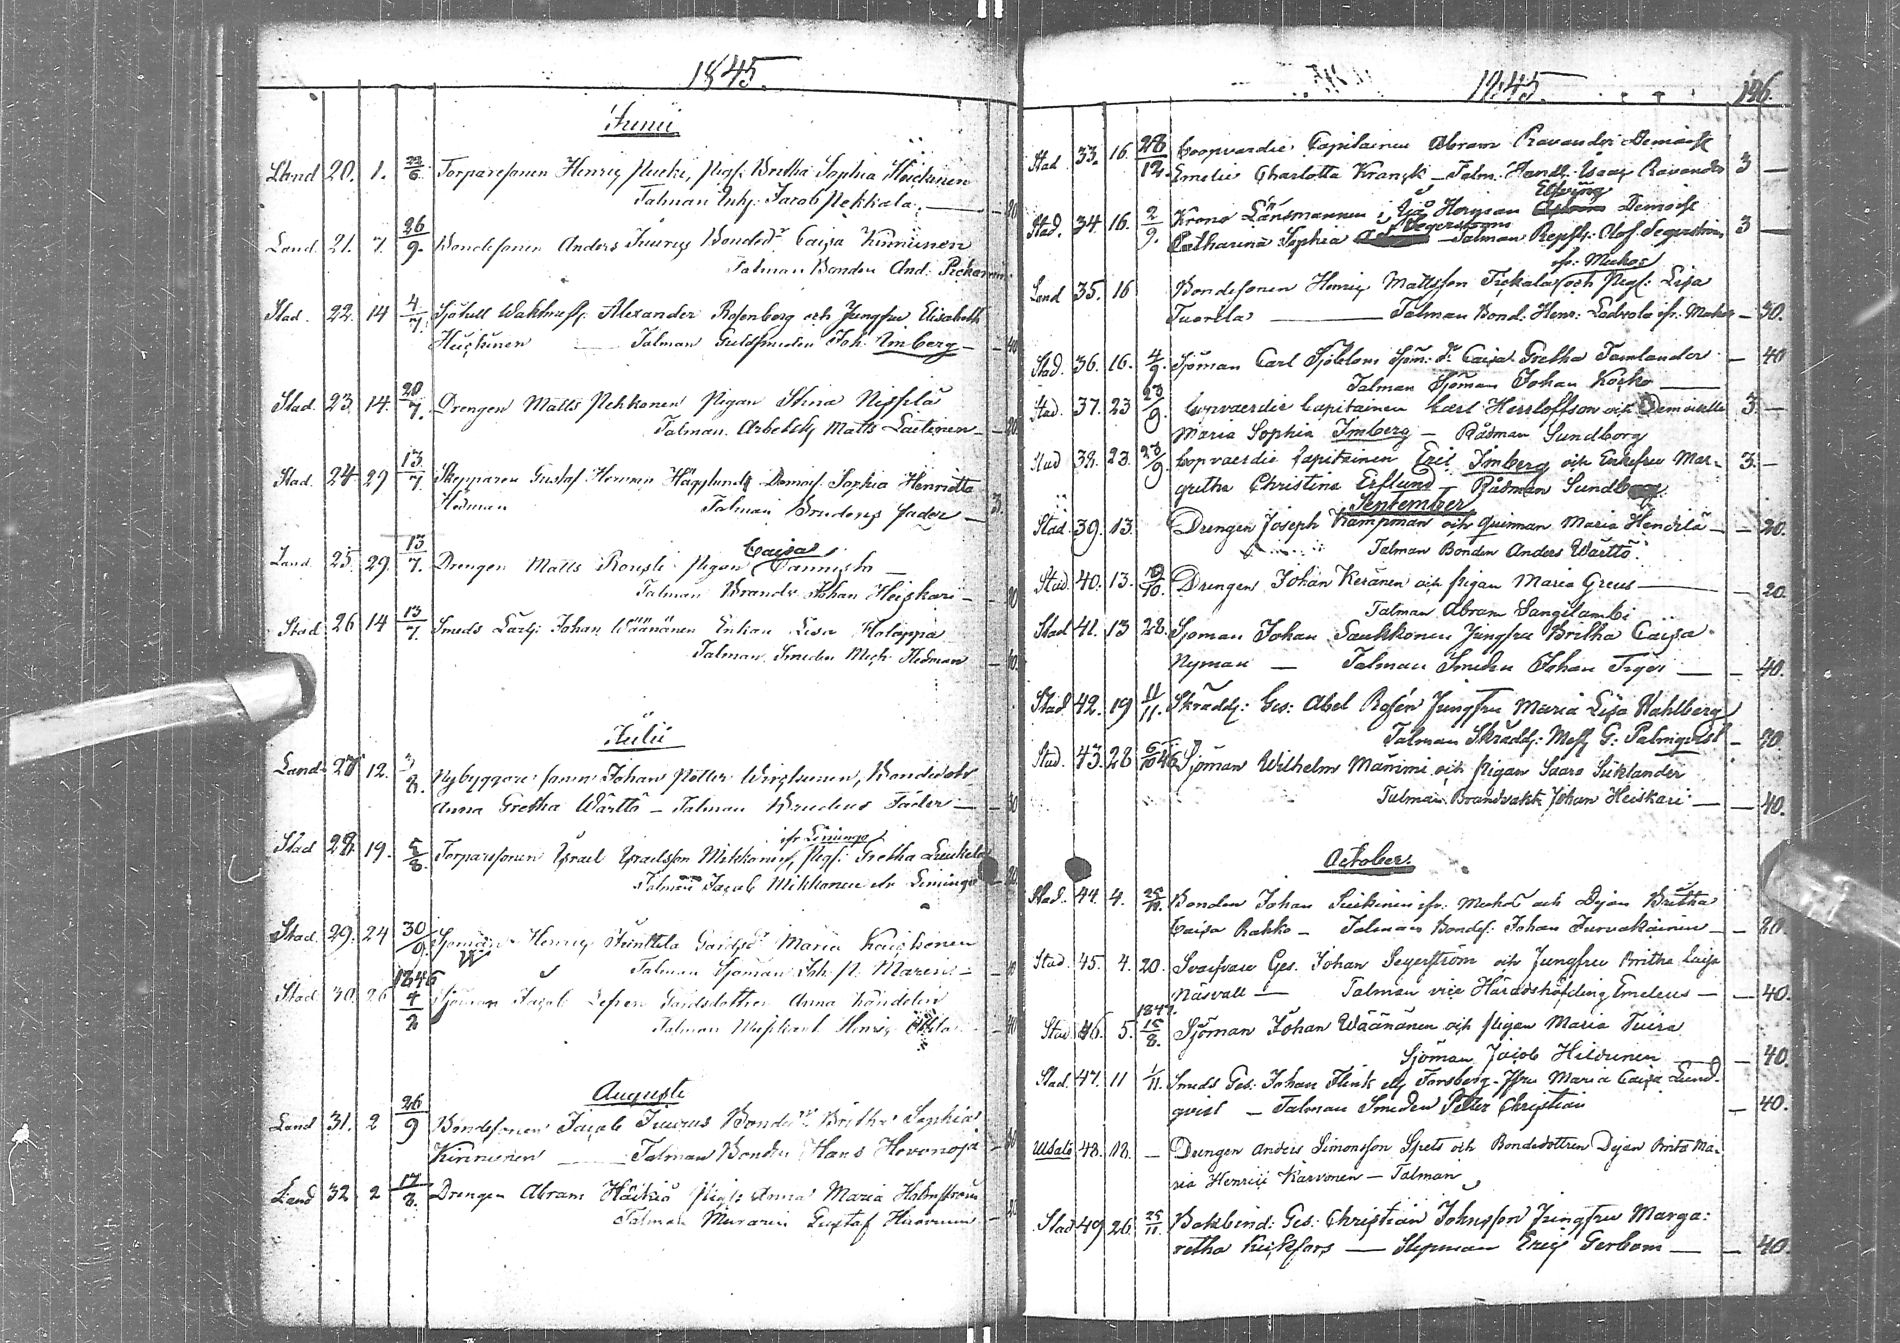 1845.
Junii
Land 20. 1. 22/6 Torparesonen Henric Pig: Britha Sophia Heickinen
Talman Inh: Jacob Pekkala. — 20
Land 21. 7. 26/9. Bondesonen Anders Juurus Bonded:r Caisa Kinnunen
Talman Bonden And: Pickarainen
Stad. 22. 14 4/7. Alexander Rosenberg och Jungfru Elisabeth
Heickinen — Talman Guldsmeden Joh: Imberg — 40
Stad. 23. 14. 20/7. Drengen Matts Pekkonen Pigan Stina Nissilä
Talman Arbetsk: Matts Laitinen — 20
Stad. 24 29 13/7. Skepparen Gustaf Hemming Hägglund Demois: Sophia Henrietta
Hedman Talman Brudens fader — 3.
Land. 25. 29. 13/7. Drengen Matts Pigan Caisa
Talman Brandv. Johan Heiskari — 20
Stad 26 14 13/7. Smeds Lärl: Johan Wäänänen Enkan Lisa Holappa
Talman Smeden Mich: Hedman — 40.
Julii
Land 27 12. 3/8. Nybyggare sonen Johan Petter Bondedotr
Anna Gretha Wärttö — Talman Brudens Fader — 30
Stad 28. 19. 5/8. Torparesonen Israel Israelsson Mikkonen, ifr Limingo Pig: Gretha
Talman Jacob Mikkonen ifr Limingo — 20
Stad 29. 24 30/9. Sjöman Henric Gårdsd: Maria
Talman Sjöman Joh: P. — 40
Stad 30. 26 1846 4/2 Sjöman Jacob Gårdsdottren Anna Kandelin
Talman Henric — 40
Augusti
Land 31. 2 26/9 Bondesonen Jacob Juurus Bonded:r Britha Sophia
Kinnunen — Talman Bonden Hans — 30
Land 32. 2 17/8. Drengen Abram Heikka Pig: Anna Maria Holmström
Talman Muraren Gustaf — 20
1845. 146.
Stad. 33. 16. 28/12. Coopvaerdie Capitainen Abram Ravander Demois:
Emelie Charlotta Kranck — Talm: Handl: Isaac Ravander 3 —
Stad. 34. 16. 2/9. Krono Länsmannen i Ijå Herman Elfving Demois:
Catharina Sophia Segerström — Talman Repsl: Olof Segerström 3 —
Land 35. 16 Bondesonen Henric Mattsson Tickala ifr: Muhos och Pig: Lisa
Tuorila — Talman Bond: Henr: Laurola ifr: Muhos — 30.
Stad. 36. 16. 4/9 Sjöman Carl Sjöblom Sjöm: dr: Caisa Gretha Tamlander — 40
Talman Sjöman Johan Kosko —
Stad. 37. 23 23/9. Copvaerdie Capitainen Carl Herrloffson och Demoiselle 3. —
Maria Sophia Imberg — Rådman Sundborg
Stad 38. 23. 23/9 Copvaerdie Capitainen Eric Imberg och Enkefru Mar-
gretha Christina Erslund — Rådman Sundborg. 3. —
September
Stad. 39. 13. Drengen Joseph Kamponan och Quinnan Maria Hendilä — 20.
Talman Bonden Anders Wärttö.
Stad 40. 13. Drengen Johan Keränen och Pigan Maria Greus — 20.
Talman Abram Sangilambi
Stad 41. 13 28. Sjöman Johan Saukkonen Jungfru Britha Caisa
Nyman — Talman Smeden Johan Tiger — 40.
Stad 42. 19 11/11. Skrädd: Ges: Abel Rosén Jungfru Maria Lisa Wahlberg
Talman Skrädd: Mest: G: Palmqvist — 20.
Stad. 43. 28 5/10 46 Sjöman Wilhelm Manimi och Pigan Saara Siiklander
Talman Brandvakt: Johan Heiskari — 40.
October
Stad. 44. 4. 25/11. Bonden Johan ifr: Muhos och Dejan Britha
Caisa Rahko — Talman Bonds: Johan Turvakainen — 20
Stad. 45. 4. 20. Svarfvare Ges. Johan Segerström och Jungfru Britha Caisa
Näsvall — Talman vice Häradshöfding Emeleus — 40.
Stad 46. 5. 1847. 15/8. Sjöman Johan Wäänänen och Pigan Maria Tuira
Sjöman Jacob Hildunen — 40.
Stad. 47. 11 1/11. Smeds Ges. Johan Flink ell Forsberg Jfru Maria Caisa Lund-
qvist — Talman Smeden Petter Christian — 40.
Utsatt 48. 18. — Drengen Anders Simonsson Spets och Bondedottren Dejan Brita Ma-
ria Henric Karvonen — Talman
Stad 49 26 25/11. Bokbind: Ges: Christian Johnsson Jungfru Marga:
retha — Styrman Eric Gerbom — 40.